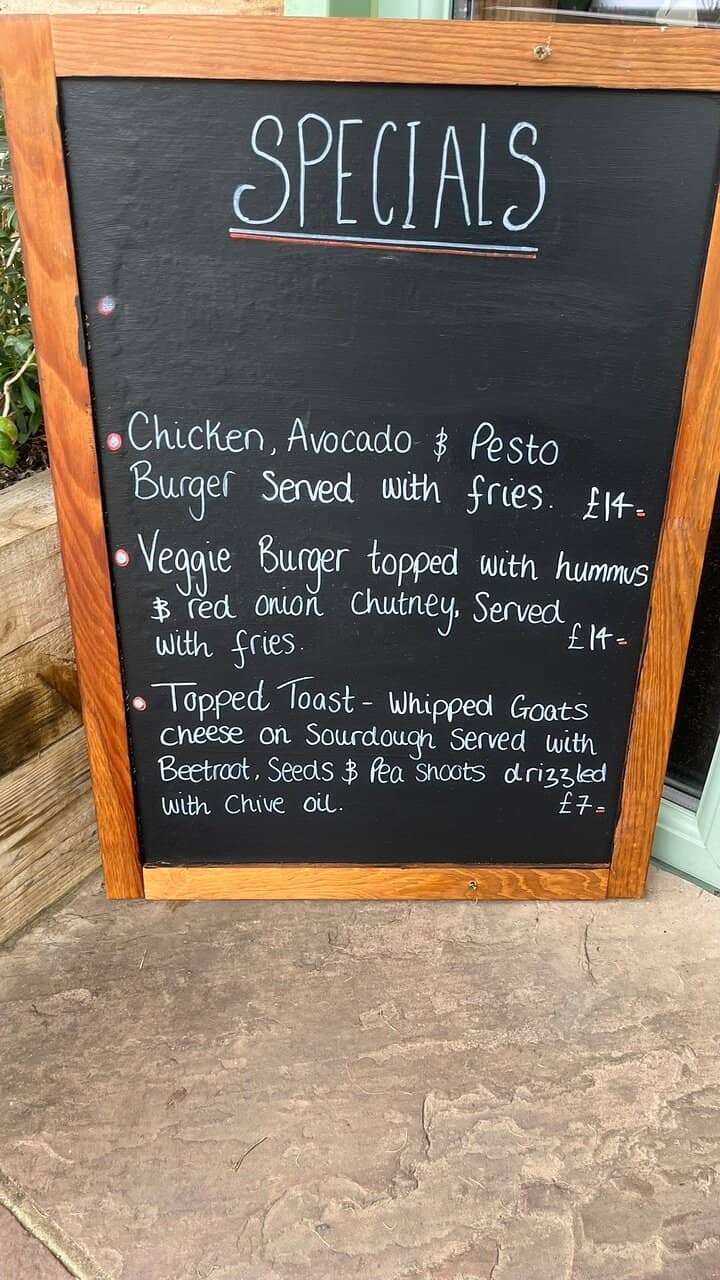 SPECIALS
Chicken, Avocado & Pesto
Burger Served with fries. £14=
Veggie Burger topped with hummus
& red onion chutney, Served
with fries. £14=
Topped Toast - Whipped Goats
cheese on Sourdough Served with
Beetroot, Seeds & Pea Shoots drizzled
with Chive oil. £7=